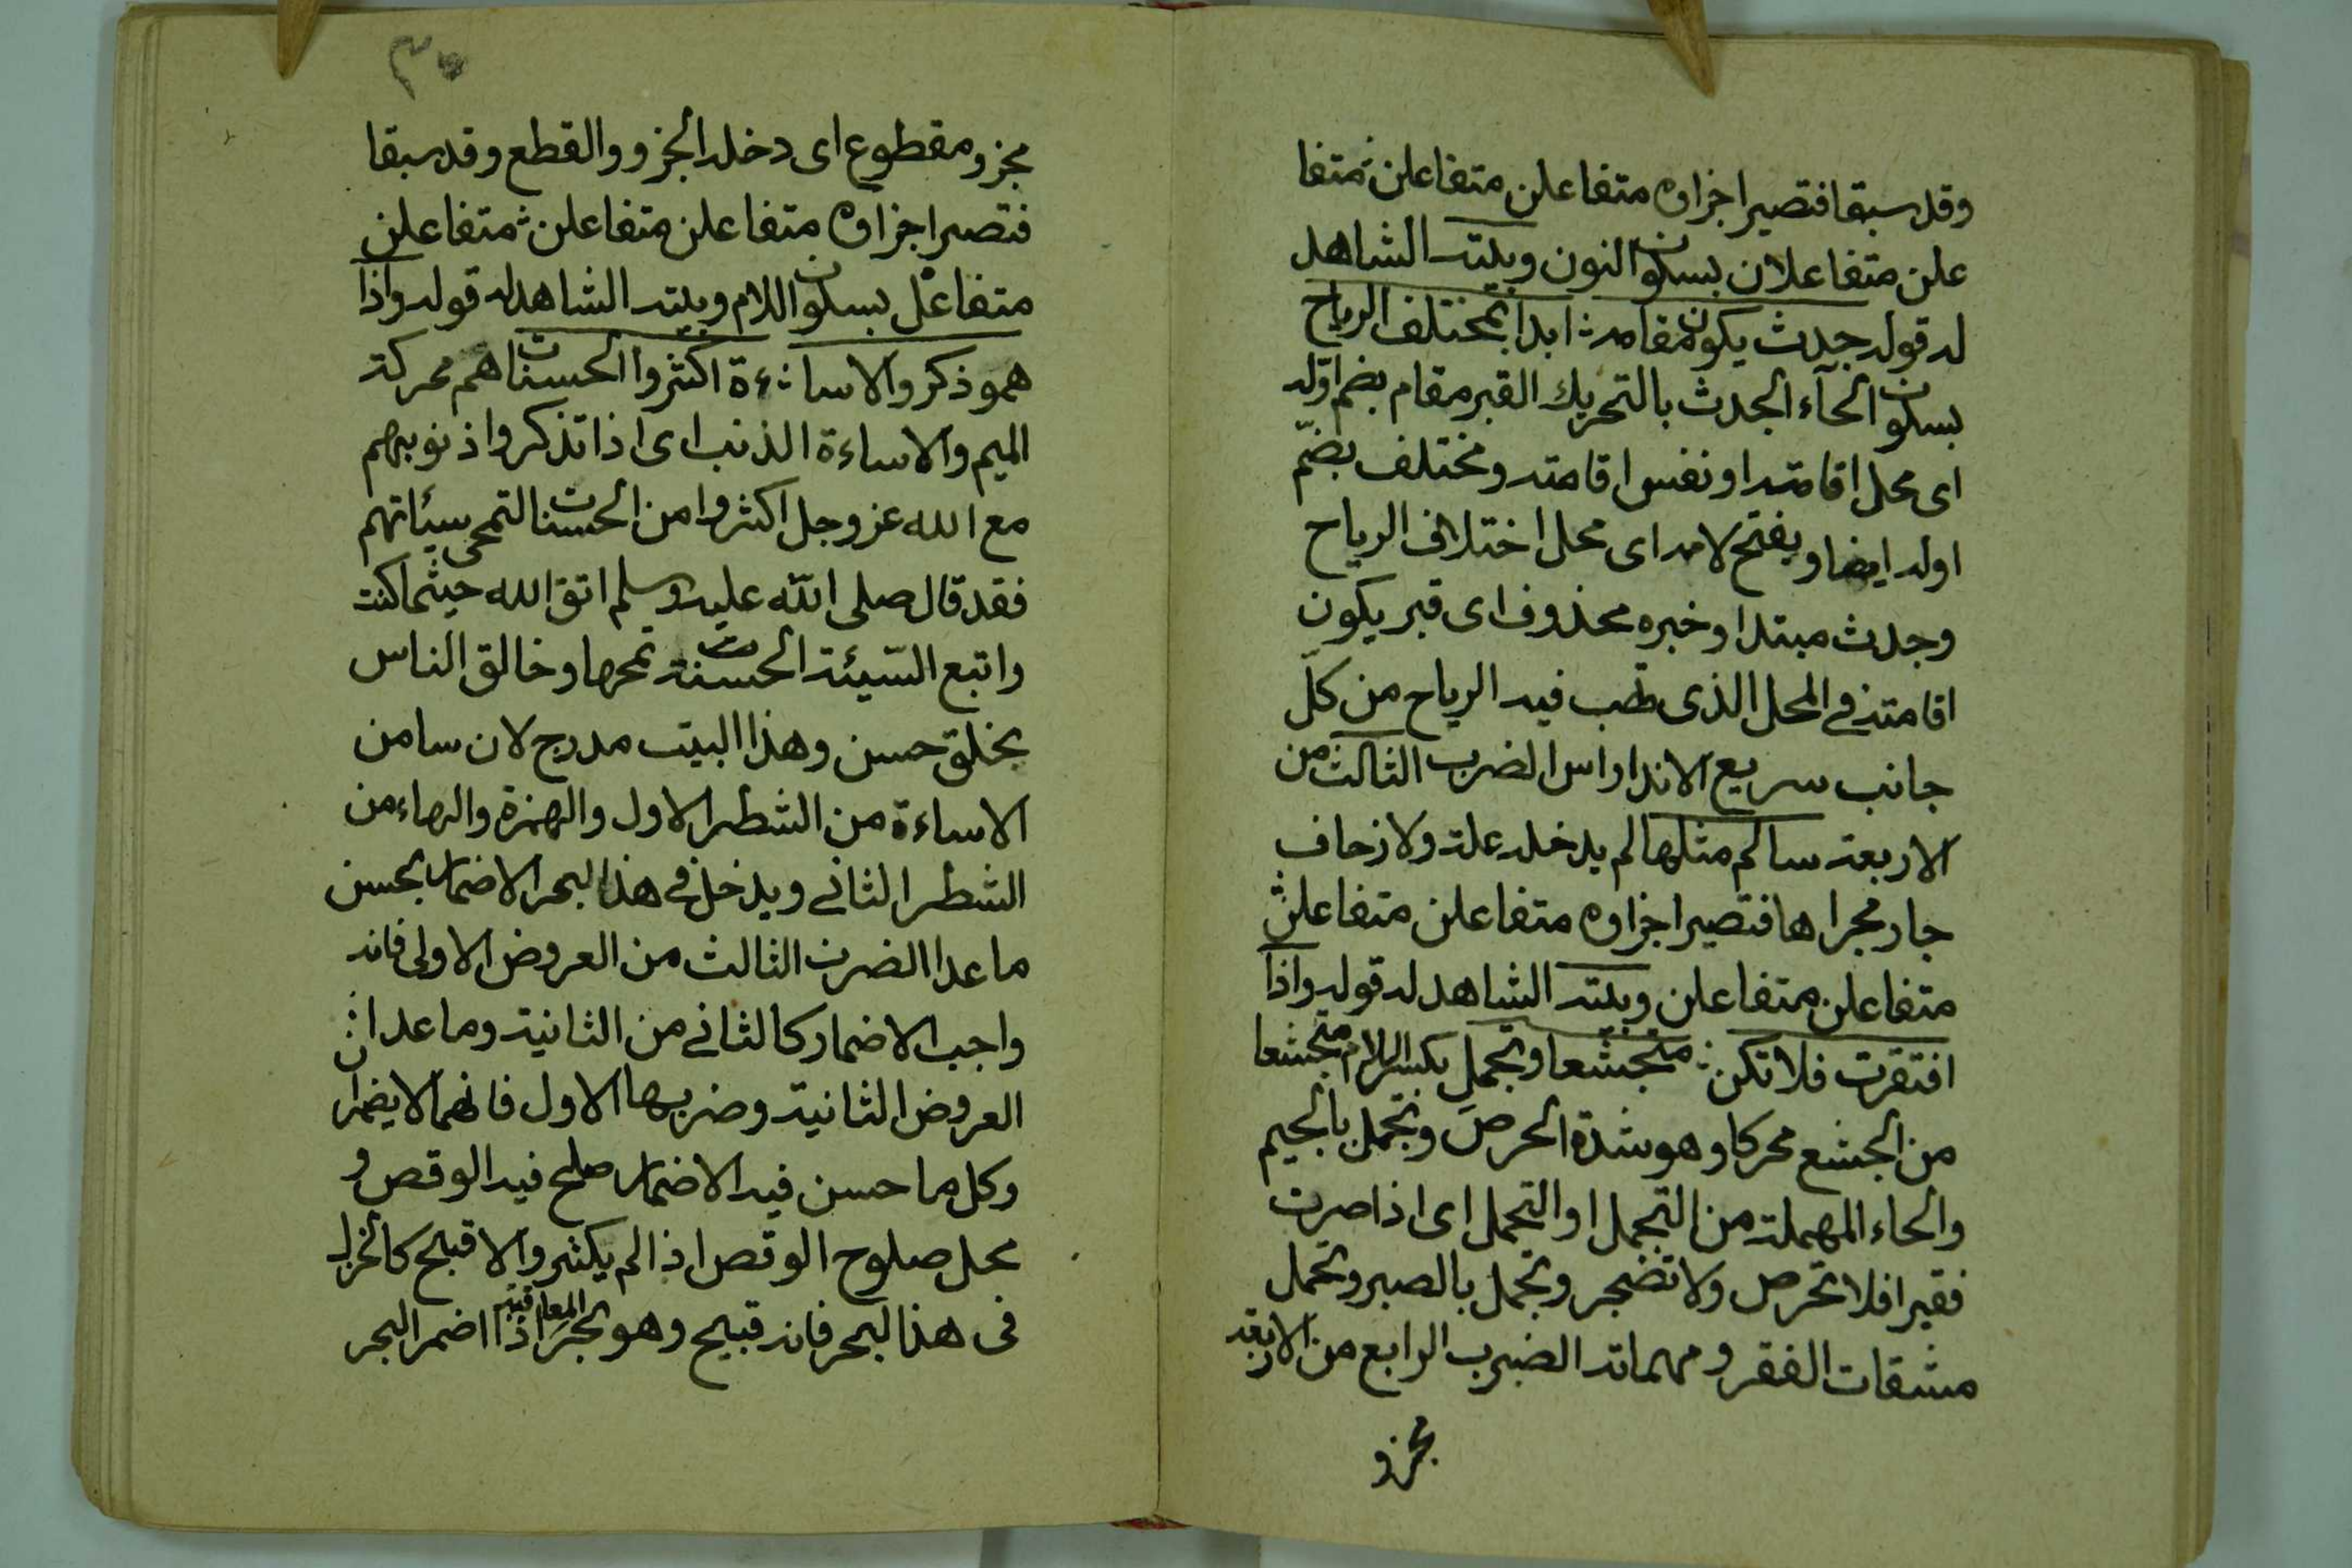 وقد سبقا فتصير اجزاوه متفاعلن متفاعلن ∴ متفا
علن متفاعلان بسكون النون وبيته الشاهد
له قوله جدث يكون مقامه ∴ ابدا بمختلف الرياح
بسكون الحآء الجدث بالتحريك القبر مقام بضم اوّله
اى محل اقامته او نفس اقامته ومختلف بضّم
اوله ايضا وبفتح لامه اى محل اختلاف الرياح
وجدث مبتدا وخبره محذوف اى قبر يكون
اقامته فے المحل الذى تهب فيه الرياح من كلّ
جانب سريع الاندا راس الضرب الثالث من
الاربعة سالم مثلها لم يدخله علة ولا زحاف
جار مجراها فتصير اجزاوه متفاعلن متفاعلن ∴
متفاعلن متفاعلن وبيته الشاهد له قوله واذا
افتقرت فلا تكن ∴ متجشعا وتجمل بكسر اللام متجشعا
من الجشع محركا وهو شدة الحرص وتجمل بالجيم
والحاء المهملة من التجمل او التحمل اى اذا صرت
فقيرا فلا تحرص ولا تضجر وتجمل بالصبر وتحمل
مشقات الفقر ومهماته الضرب الرابع من الاربعة
مجزو
٢٥
مجزو ومقطوع اى دخله الجزو والقطع وقد سبقا
فتصير اجزاوه متفاعلن متفاعلن ∴ متفاعلن
متفاعلْ بسكون اللام وبيته الشاهد له قوله واذا
همو ذكروا الاسا ∴ ءة اكثروا الحسنات هم محركة
الميم والاساءة الذنب اى اذا تذكروا ذنوبهم
مع الله عز وجل اكثروا من الحسنات لتمحى سيئاتهم
فقد قال صلى الله عليه وسلم اتق الله حيثما كنت
واتبع السّيئة الحسنة تمحها وخالق الناس
بخلق حسن وهذا البيت مدرج لان سا من
الاساءة من الشطر الاول والهمزة والهاء من
الشطر الثانے ويدخل فے هذا البحر الاضمار بحسن
ما عدا الضرب الثالث من العروض الاولى فانه
واجب الاضمار كالثانے من الثانية وما عدا ∴
العروض الثانية وضربها الاول فانهما لا يضمران
وكل ما حسن فيه الاضمار صلح فيه الوقص و
محل صلوح الوقص اذا لم يكثر والا قبح كالخزل
فى هذا البحر فانه قبيح وهو تجر المعاقبة اذا اضمر البحر